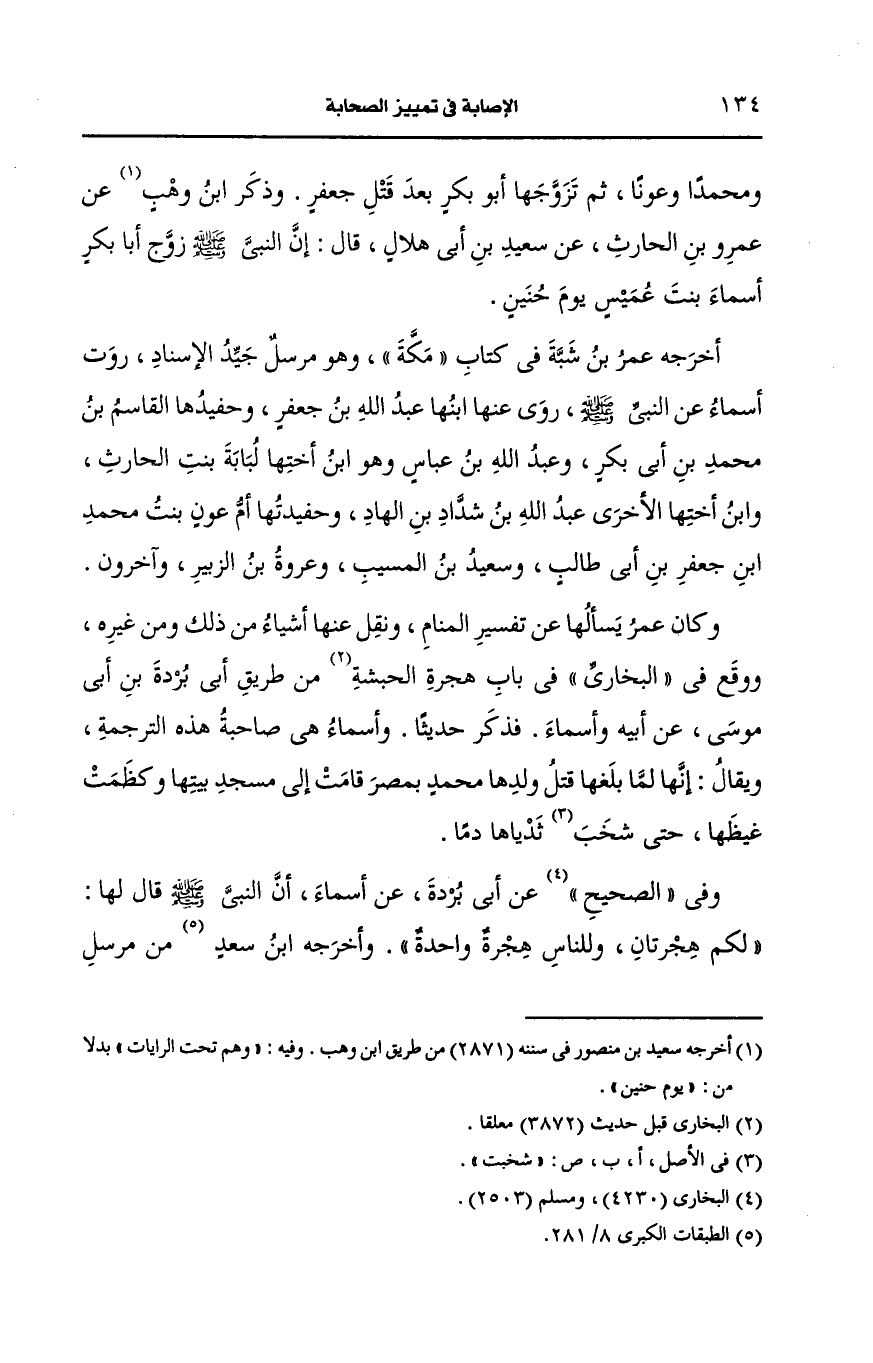 ١٣٤ الإصابة فى تمييز الصحابة
ومحمدًا وعونًا ، ثم تَزَوَّجَها أبو بكرٍ بعدَ قَتْلِ جعفرٍ . وذكَر ابنُ وهْبٍ(١) عن
عمرِو بنِ الحارثِ ، عن سعيدِ بنِ أبى هلالٍ ، قال : إنَّ النبىَّ ﷺ زوَّج أبا بكرٍ
أسماءَ بنتَ عُمَيْسٍ يومَ حُنَينٍ .
أخرَجه عمرُ بنُ شَبَّةَ فى كتابِ « مَكَّةَ » ، وهو مرسلٌ جَيِّدُ الإسنادِ ، روَت
أسماءُ عن النبىِّ ﷺ ، روَى عنها ابنُها عبدُ اللهِ بنُ جعفرٍ ، وحفيدُها القاسمُ بنُ
محمدِ بنِ أبى بكرٍ ، وعبدُ اللهِ بنُ عباسٍ وهو ابنُ أختِها لُبَابَةَ بنتِ الحارثِ ،
وابنُ أختِها الأخرَى عبدُ اللهِ بنُ شدَّادِ بنِ الهادِ ، وحفيدتُها أمُّ عونٍ بنتُ محمدِ
ابنِ جعفرِ بنِ أبى طالبٍ ، وسعيدُ بنُ المسيبِ ، وعروةُ بنُ الزبيرِ ، وآخرون .
وكان عمرُ يَسألُها عن تفسيرِ المنامِ ، ونقِل عنها أشياءُ من ذلك ومن غيرِه ،
ووقَع فى « البخارىِّ » فى بابِ هجرةِ الحبشةِ(٢) من طريقِ أبى بُرْدةَ بنِ أبى
موسَى ، عن أبيه وأسماءَ . فذكَر حديثًا . وأسماءُ هى صاحبةُ هذه الترجمةِ ،
ويقالُ : إنَّها لمَّا بلَغها قتلُ ولدِها محمدٍ بمصرَ قامَتْ إلى مسجدِ بيتِها وكظَمَتْ
غيظَها ، حتى شخَبَ(٣) ثَدْياها دمًا .
وفى « الصحيحِ »(٤) عن أبى بُرْدةَ ، عن أسماءَ ، أنَّ النبىَّ ﷺ قال لها :
« لكم هِجْرتانِ ، وللناسِ هِجْرةٌ واحدةٌ » . وأخرَجه ابنُ سعدٍ(٥) من مرسلِ
(١) أخرجه سعيد بن منصور فى سننه (٢٨٧١) من طريق ابن وهب . وفيه : « وهم تحت الرايات » بدلا
من : « يوم حنين » .
(٢) البخارى قبل حديث (٣٨٧٢) معلقا .
(٣) فى الأصل ، أ ، ب ، ص : « شخبت » .
(٤) البخارى (٤٢٣٠) ، ومسلم (٢٥٠٣) .
(٥) الطبقات الكبرى ٨/ ٢٨١.